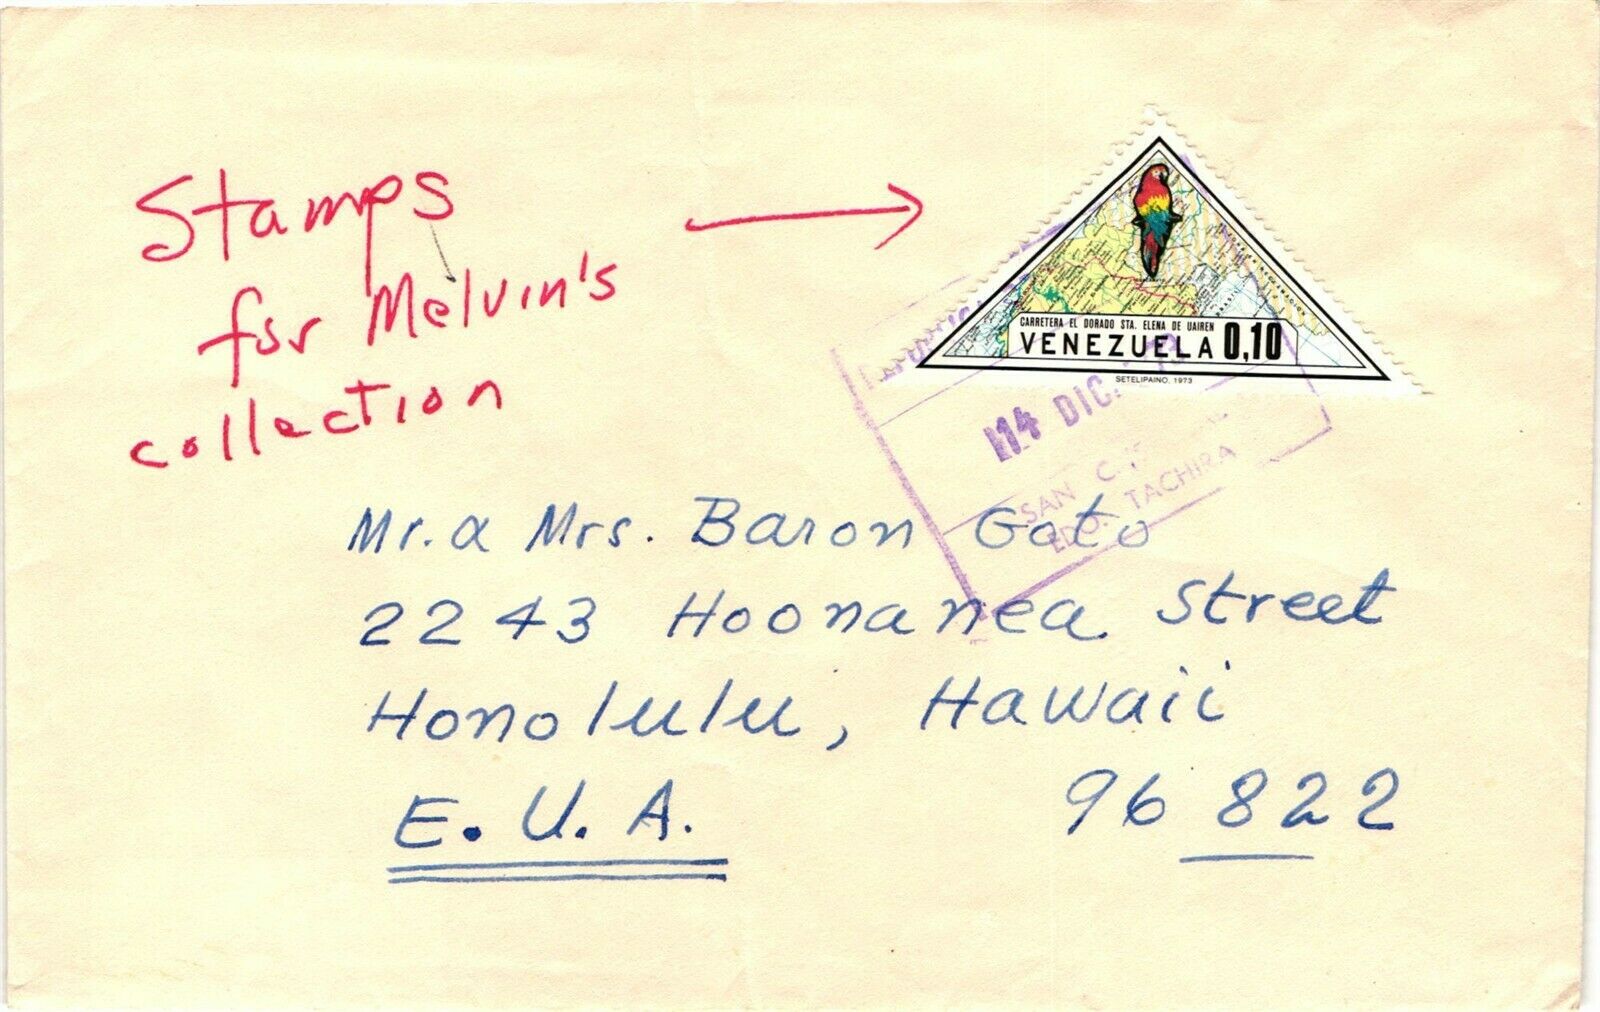 Stamps
for Melvin's
collection
CARRETERA EL DORADO STA. ELENA DE UAIREN
VENEZUELA 0,10
SETELIPAINO, 1973
14 DIC.
SAN C
EDO. TACHIRA
Mr. & Mrs. Baron Goto
2243 Hoonanea Street
Honolulu, Hawaii
E.U.A. 96822